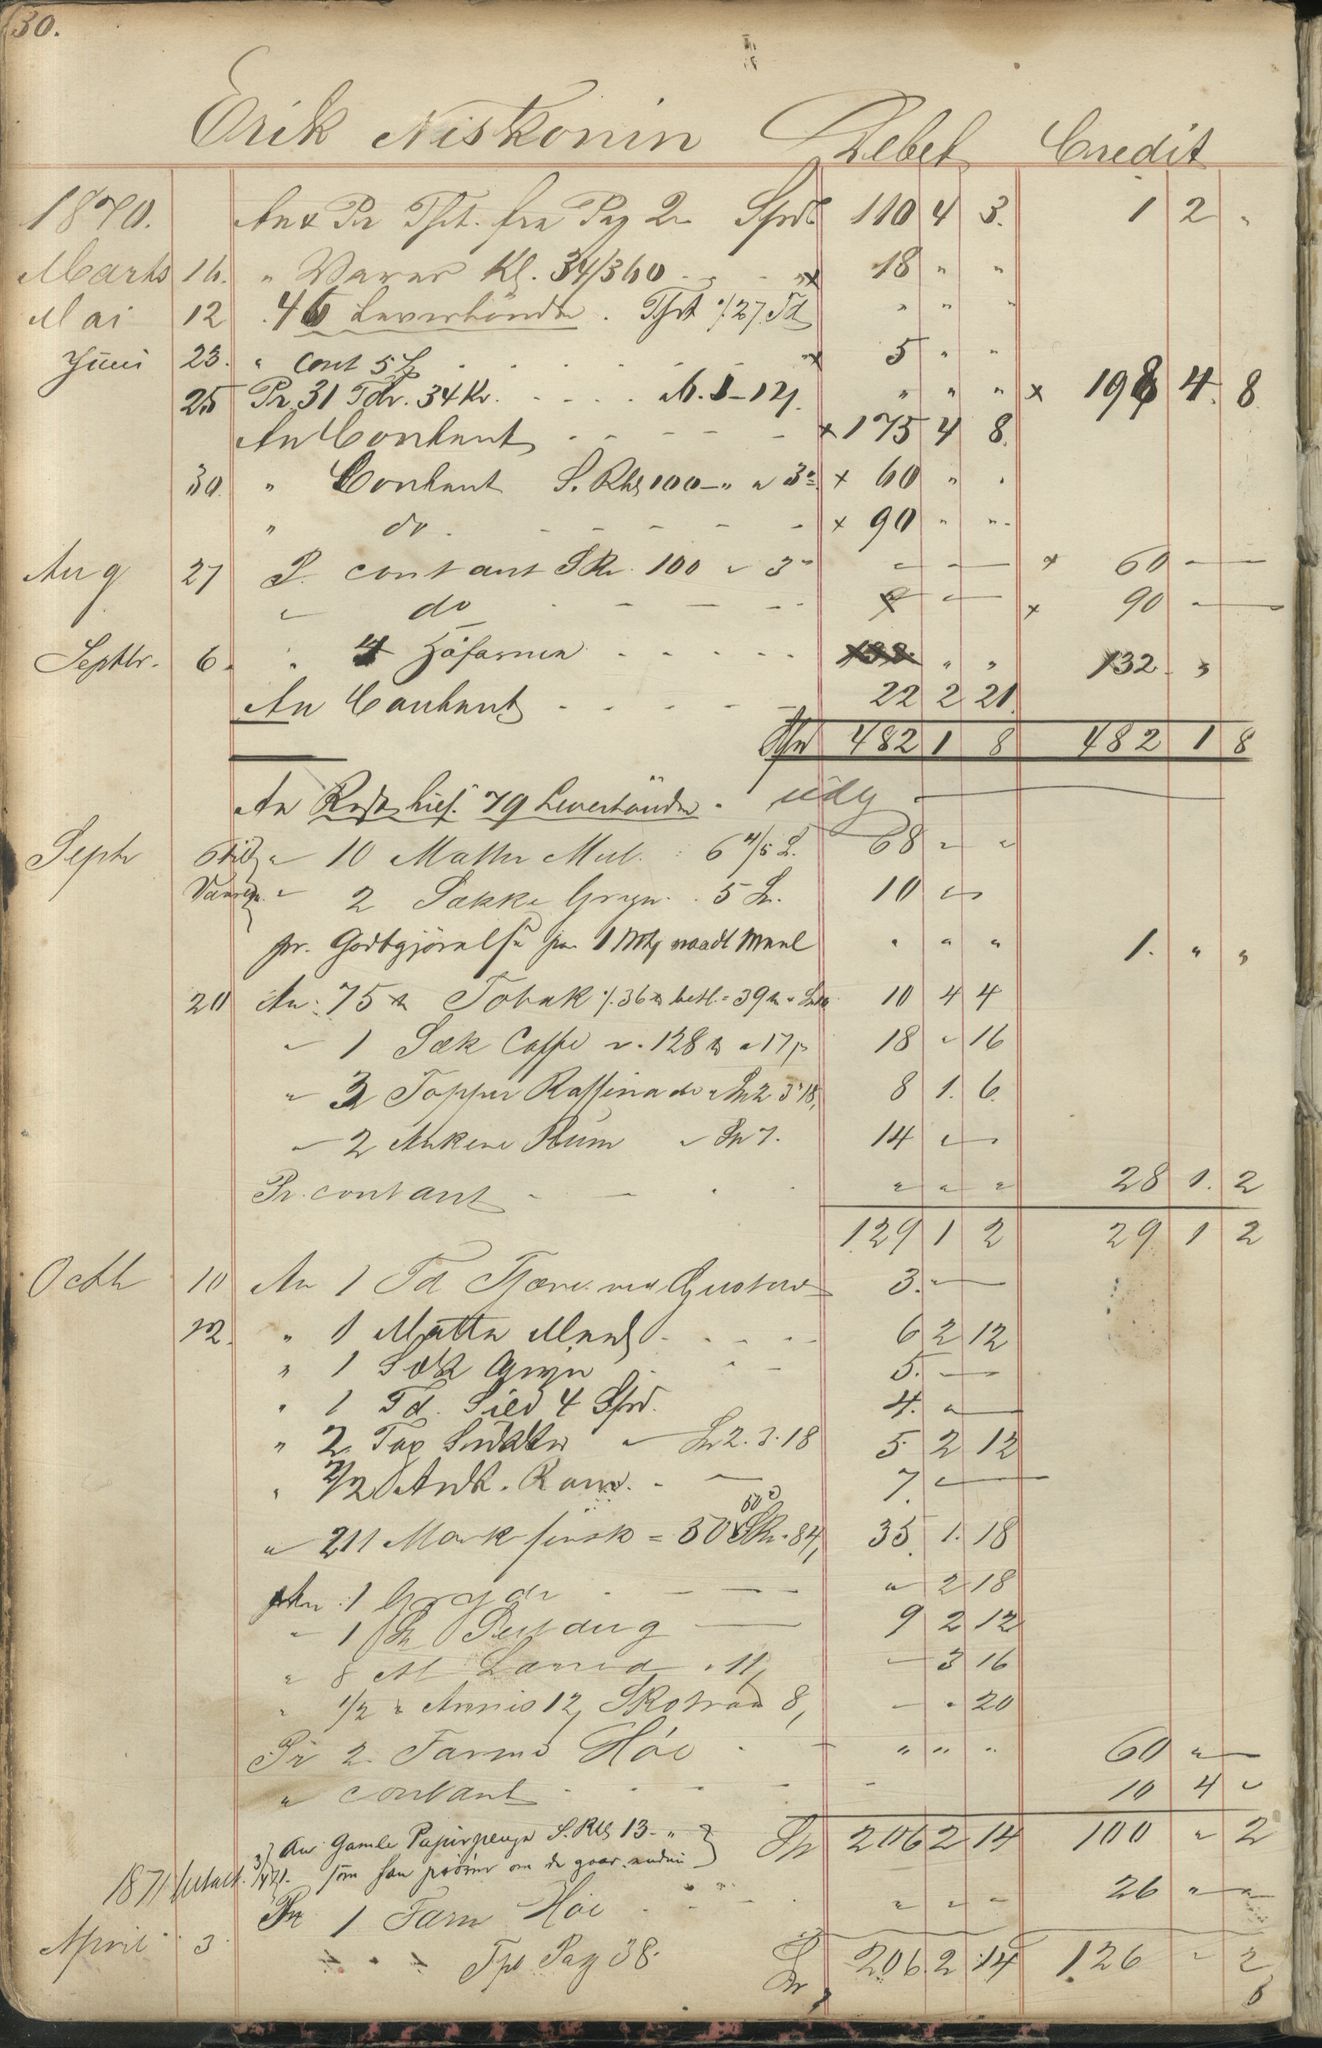 30.
Erik Niskonin Debet Credit
1870. An & Pr Tfrt. fra Pag 2 Spd. 110 4 3. 1 2 "
Marts 16. " Varer Kl. 34/360 - - - " x 18 " "
Mai 12 . 46 Leverhönder . Tfrt % 27. Td " " "
Juni 23. " Cont 5 . . . . . " x 5 " "
25 Pr. 31 Tdr. 34 Kr. - - - - " " " x 198 4. 8.
An Contant - - - - - x 175 4 8.
30. " Contant S. Rdl 100 - " a 3 x 60 " "
" do. - - - - - - x 90 " "
Aug 27 P. contant S R. 100 a 3 " — — x 60 —
" do - - - - x 90 —
Septbr. 6. " 4 Höfarmer - - - - - " " 132 "
An Contant - - - - - 22 2 21.
482 1 8 482 1 8
An Rest 79 Leverhönder . udg —
Septr 6 til " 10 Matter Mel. : 6 4/5 68 " "
Varang. " 2 Sække Gryn. . 5 10 "
pr. Godtgjörelse for 1 Mtt vaadt Meel " " " 1. " "
20 An: 75 Tobak %. 36 betl. = 39 10 4 4
" 1 Sæk Caffe v. 128 a 17 18 " 16
" 3 Topper Raffinade a 2 3 18, 8 1. 6.
" 2 Ankere Rum a 7. 14 "
Pr. contant - - . . " " " 28 1. 2
129 1 2 29 1 2
Octb 10 An 1 Td Tjære ved Gustav 3. —
12. " 1 Matte Meel - . . - - 6 2 12
" 1 Sæk Gryn . - - 5. —
" 1 Td. Sild 4 Spd. 4. " —
" 2. Top Sukker a 2. 3. 18 5. 2 12
" 2/2 Ank. Rom. - — 7. —
" 211 Mark finsk = 50 84, 35. 1. 18
An . 1 Gryde - - — " 2 18
" 1 — 9 2 12
" 8 Al Lærred . 11, — 3 16
" 1/2 " Annis 12, Skotraa 8, — " 20
Pr 2. Farme Höe - - " " " 60 " —
" contant - . - - - - 10 4 "
An Gamle Papirpenge S. Rdl 13 - " 206 2 14 100 " 2
som han prøver om de gaar
1871 Pr 1 Farm Höe . . - . " " " 26 " "
April 3 Tfs Pag 38. 206. 2. 14 126 " 2